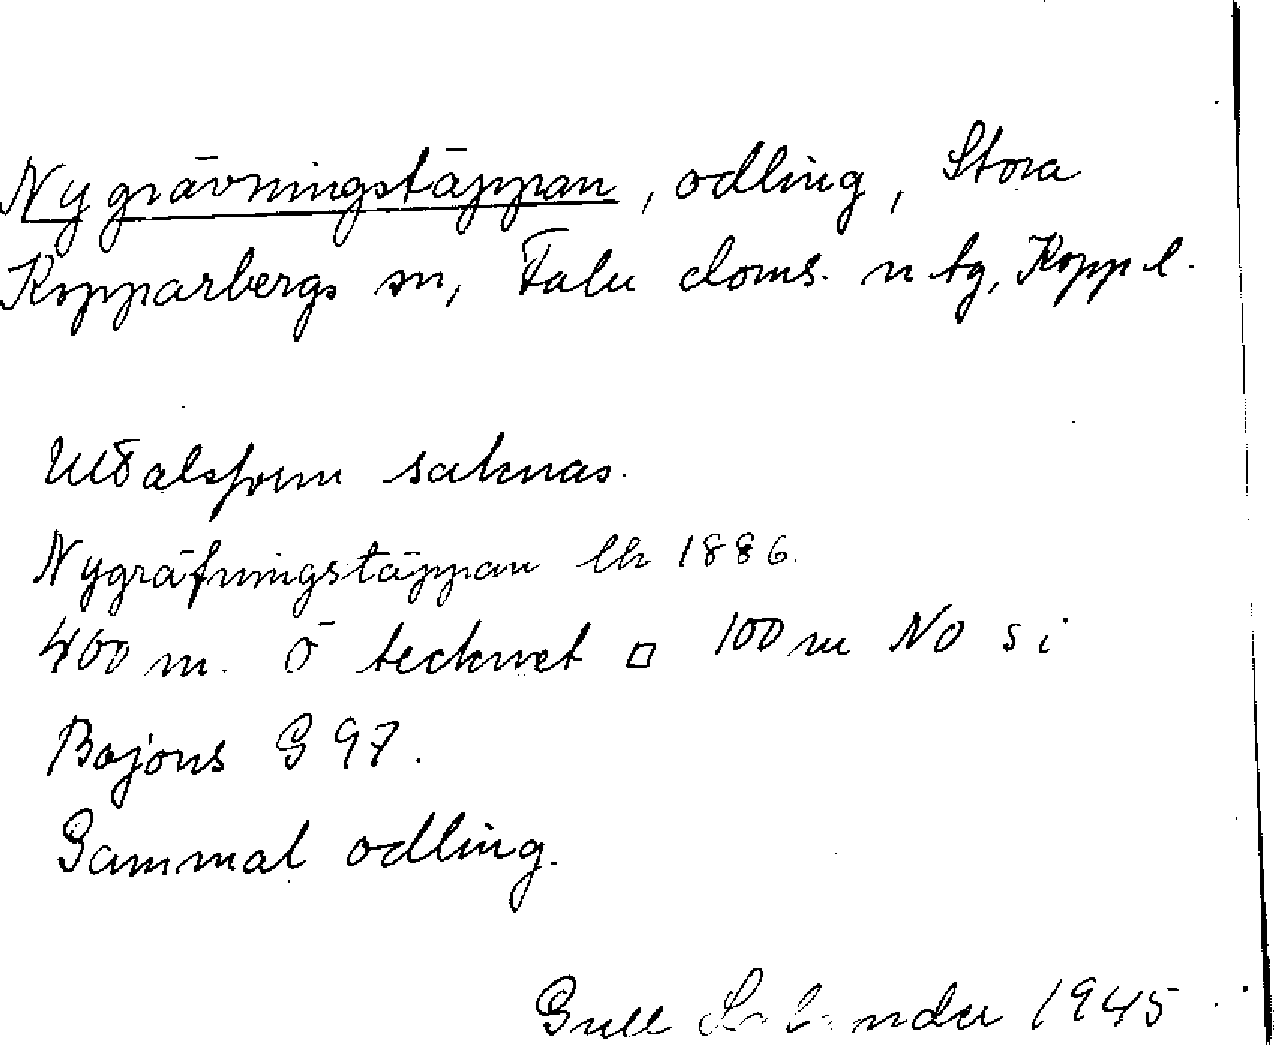 Nygrävningstäppan, odling, Stora
Kopparbergs sn, Falu doms. n tg, Kopp l.
Uttalsform saknas.
Nygräfningstäppan lh 1886.
400 m. Ö tecknet □ 100 m NO s i
Bojons G 97.
Gammal odling.
Gull 1945